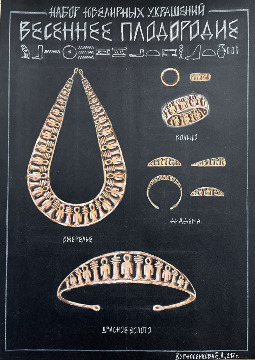 НАБОР ЮВЕЛИРНЫХ УКРАШЕНИЙ
ВЕСЕННЕЕ ПЛОДОРОДИЕ
КОЛЬЦО
ДИАДЕМА
ОЖЕРЕЛЬЕ
ДУТОЕ ЗОЛОТО